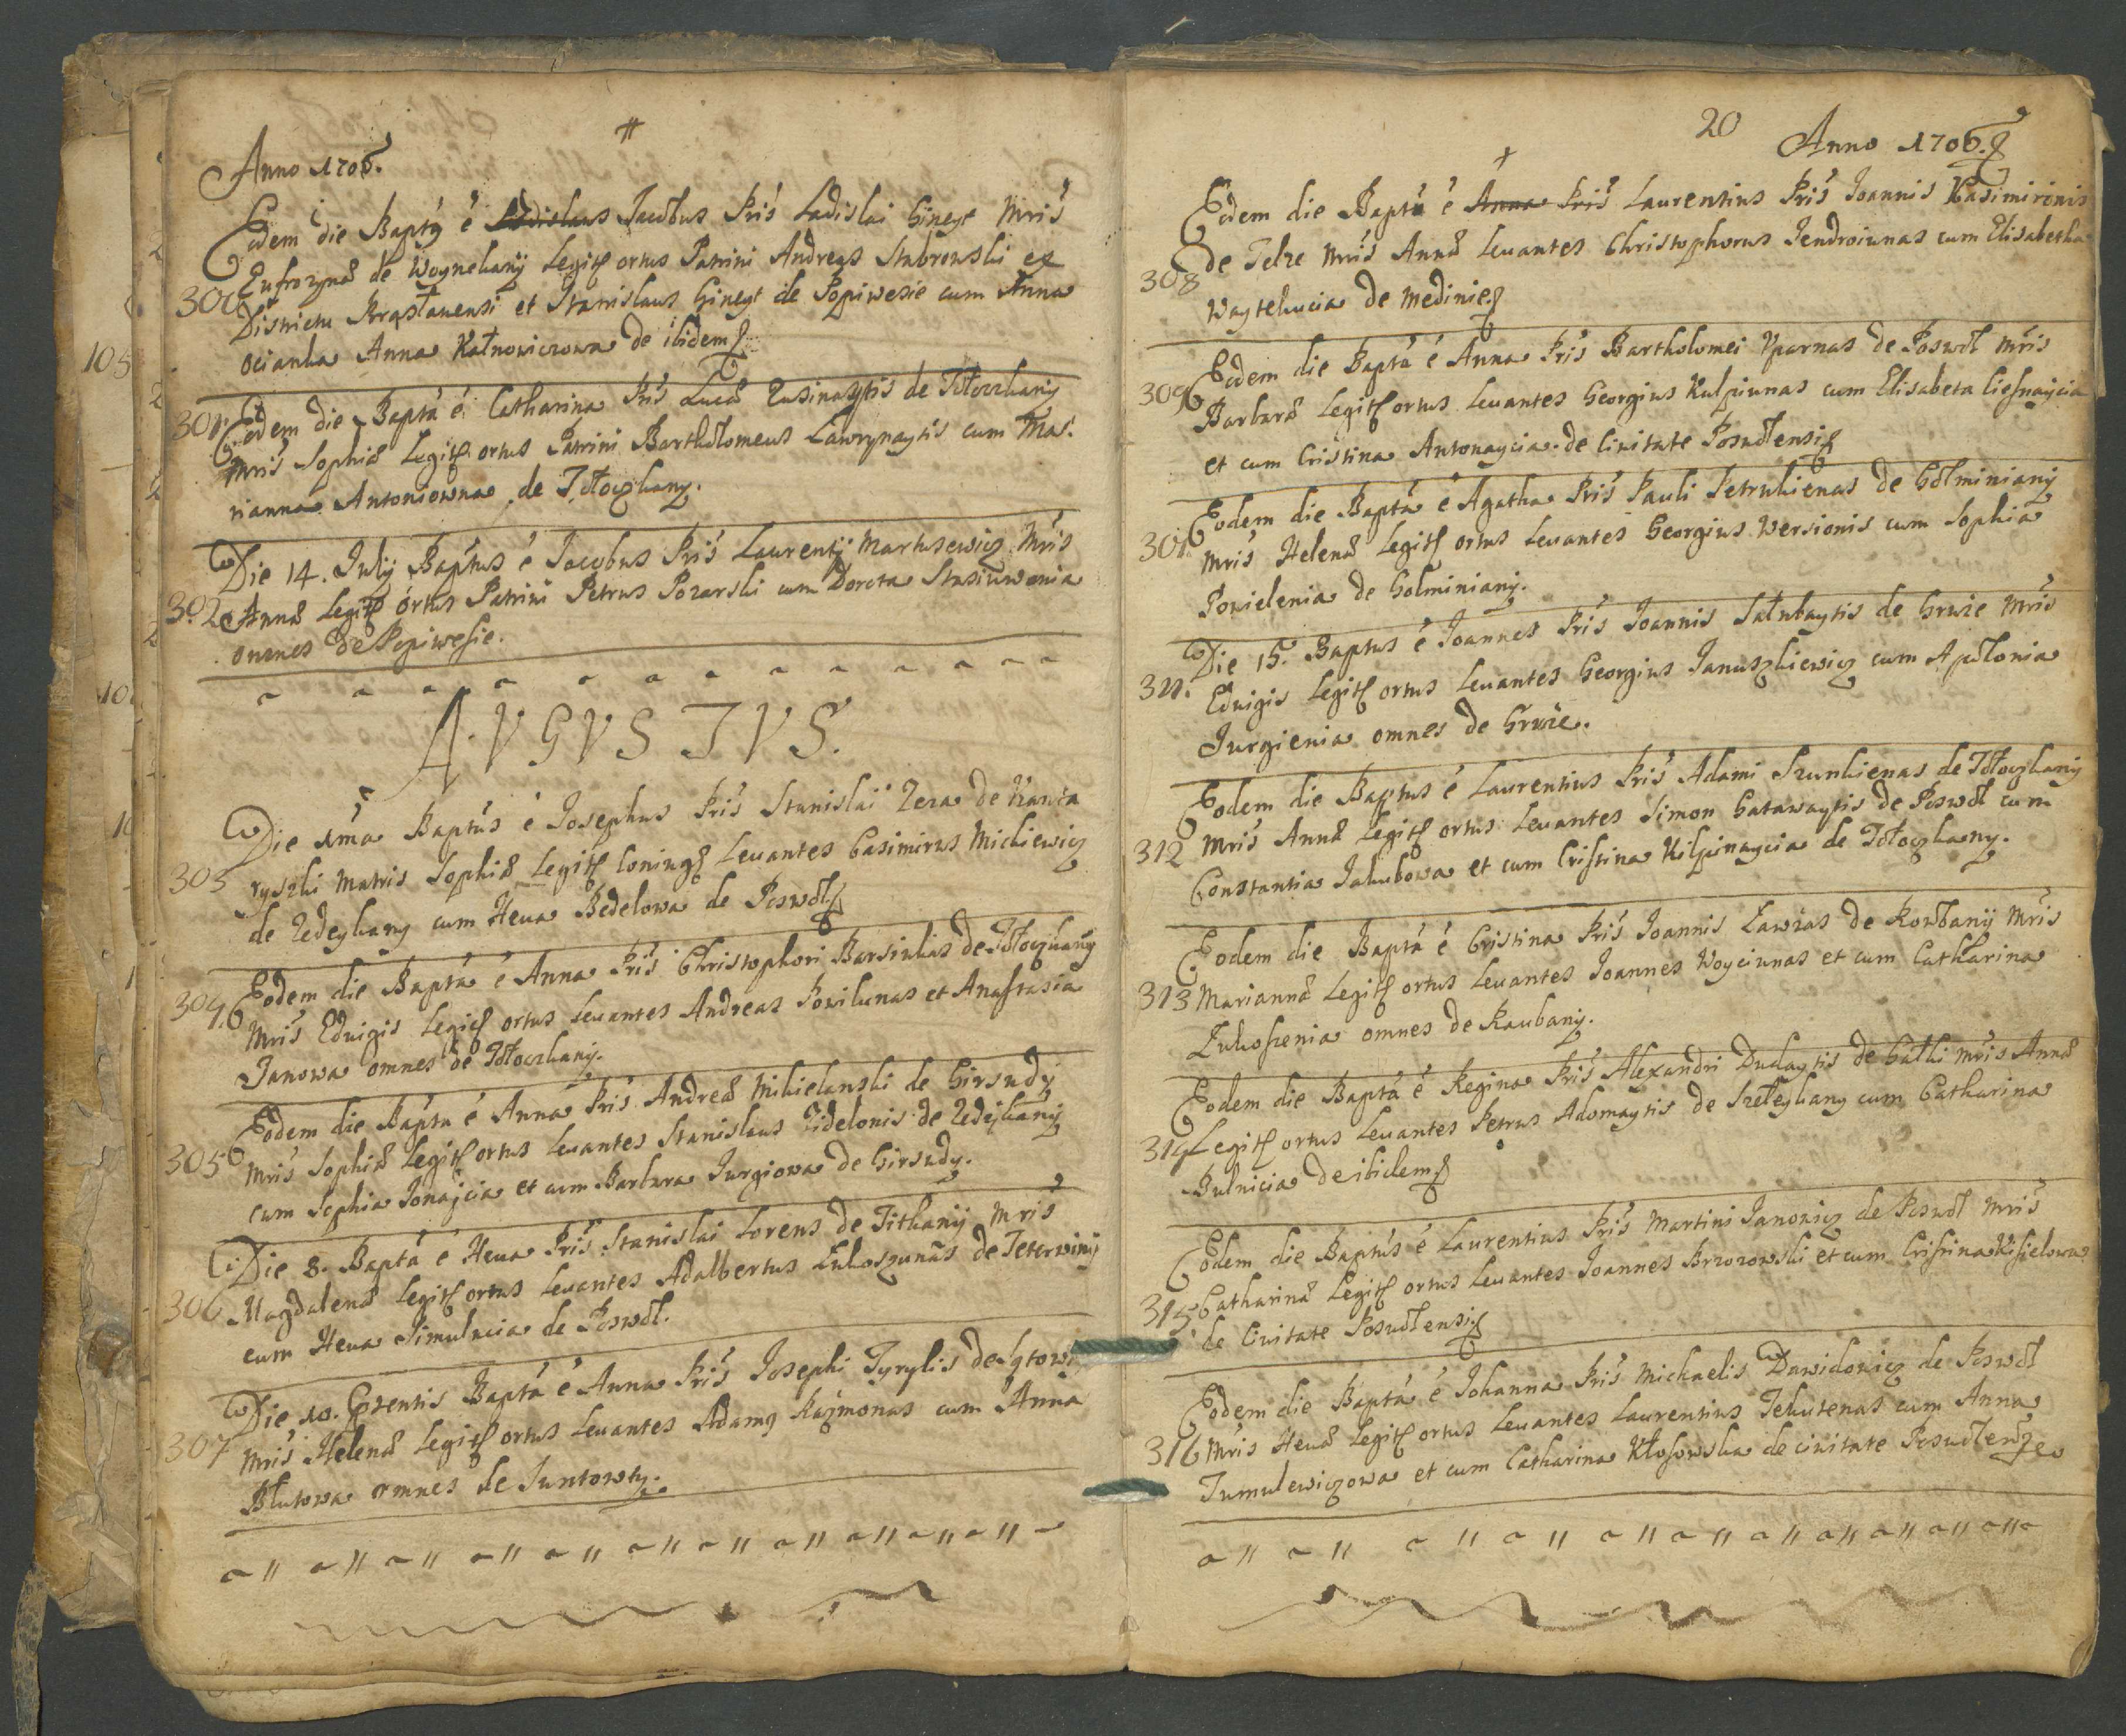 Anno 1706.
Eodem die Baptũ é Ladislaus Jacobus Pris Ladislai Gineyt Mris
Eufrozynæ de Woynekany Legit ortus Patrini Andreas Stabrowski ex
300
Districtu Brasłauensi et Stanislaus Gineyt de Popiwesie cum Anna
ocianka Anna Katnowiczowa de ibidem
301 Eodem die Baptá é Catharina Pris Lucæ Rusinaytis de Tołoczkany
Mris Sophiæ Legit ortus Patrini Bartholomeus Lawrynaytis cum Ma:
rianna Antoniowna de Tołoczkany.
Die 14. July Baptus é Jacobus Pris Laurentij Martusewicz Mris
302 Annæ Legit ortus Patrini Petrus Pozarski cum Dorota Stasiuwenia
omnes de Popiwesie.
AVGVSTVS.
Die 1ma Baptus é Josephus Pris Stanislai Zera de Kanta
303 ryszki Matris Sophiæ Legit Coniug Leuantes Casimirus Mickiewicz
de Zedeykany cum Heua Bedelowa de Poswol
304 Eodem die Baptá é Anna Pris Christophori Barsiukas de Tołoczkany
Mris Eduigis Legit ortus Leuantes Andreas Powilunas et Anastasia
Janowa omnes de Tołoczkany.
Eodem die Baptu é Anna Pris Andreæ Mikielanski de Girsudy
305 Mris Sophiæ Legit ortus Leuantes Stanislaus Zidelonis de Zedeykany
cum Sophia Jonajcia et cum Barbara Jurgiowa de Girsudy.
Die 8. Baptá é Heua Pris Stanislai Lorens de Titkanij Mris
306 Magdalenæ Legit ortus Leuantes Adalbertus Łukoszunas de Teterwiny
cum Heua Simulucia de Poswol.
Die 10. Prentis Baptá é Anna Pris Josephi Tyrylis de
307 Mris Helenæ Legit ortus Leuantes Adamg Kazmonas cum Anna
Blutowa omnes de Juntowty.
20 Anno 1706.
Eodem die Baptũ é Anna Pris Laurentius Pris Joannis Kasimironis
308 de Telze Mris Annæ Leuantes Christophorus Jendroiunas cum Elisabetha
Waytekucia de Medinie
309 Eodem die Baptá é Anna Pris Bartholomei Vparnas de Poswol Mris
Barbaræ Legit ortus Leuantes Georgius Kulpiunas cum Elisabeta Ciesnaycia
et cum Cristina Antonaycia de Ciuitate Posuolensi
Eodem die Baptá é Agatha Pris Pauli Petrukienas de Golminiany
301. Mris Helenæ Legit ortus Leuantes Georgius Wersionis cum Sophia
Powielenia de Golminiany.
Die 15. Baptus é Joannes Pris Joannis Sałubaytis de Gruze Mris
311. Eduigis Legit ortus Leuantes Georgius Januszkiewicz cum Apolonia
Jurgienia omnes de Gruze.
Eodem die Baptus é Laurentius Pris Adami Szunkienas de Tołoczkany
312 Mris Annæ Legit ortus Leuantes Simon Gatawaytis de Poswol cum
Constantia Jakubowa et cum Cristina Kilpinaycia de Tołoczkany.
Eodem die Baptá é Cristina Pris Joannis Ławzas de Rowbanij Mris
313 Mariannæ Legit ortus Leuantes Joannes Woyciunas et cum Catharina
Łukoszenia omnes de Raubany.
Eodem die Baptá é Regina Pris Alexandri Dudaytis de Gałki Mris Annæ
314 Legit ortus Leuantes Petrus Adomaytis de Szeleykany cum Catharina
Bulnicia de ibidem
Eodem die Baptús é Laurentius Pris Martini Janowicz de Poswol Mris
315. Catharinæ Legit ortus Leuantes Joannes Brzozowski et cum Cristina Kisielowa
de Ciuitate Posuolensi
Eodem die Baptá é Johanna Pris Michaelis Dawidowicz de Poswol
316 Mris Heuæ Legit ortus Leuantes Laurentius Tekutenas cum Anna
Tumulewiczowa et cum Catharina Kłosowska de ciuitate